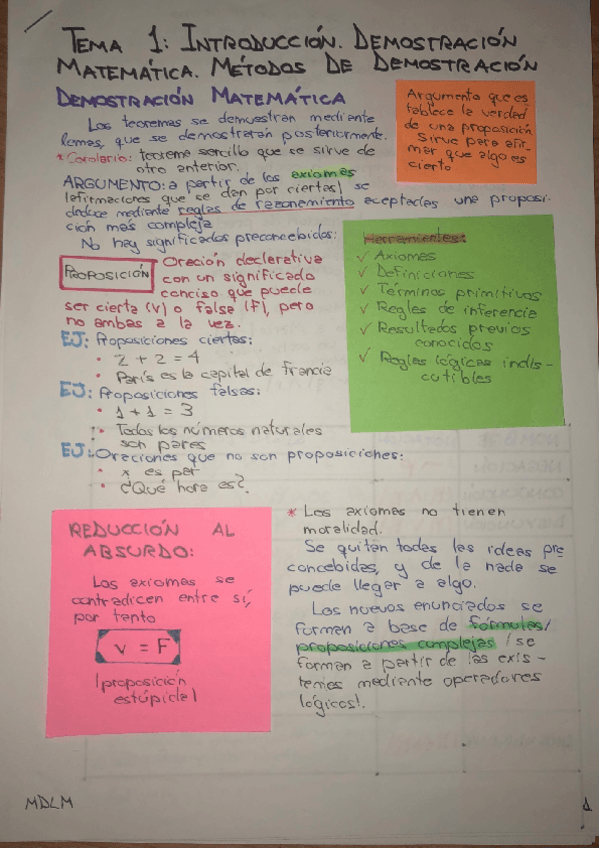 TEMA 1: INTRODUCCIÓN. DEMOSTRACIÓN
MATEMÁTICA. MÉTODOS DE DEMOSTRACIÓN
DEMOSTRACIÓN MATEMÁTICA
Los teoremas se demuestran mediante
lemas, que se demostrarán posteriormente.
* Corolario: teorema sencillo que se sirve de
otro anterior.
Argumento que es
tablece la verdad
de una proposición
Sirve para afir
mar que algo es
cierto.
ARGUMENTO: a partir de los axiomas
(afirmaciones que se dan por ciertas) se
deduce mediante reglas de razonamiento aceptadas una proposi-
ción más compleja
No hay significados preconcebidos:
PROPOSICIÓN
Oración declarativa
con un significado
conciso que puede
ser cierta (V) o falsa (F), pero
no ambas a la vez.
Herramientas:
✓ Axiomas
✓ Definiciones
✓ Términos primitivos
✓ Reglas de inferencia
✓ Resultados previos
conocidos
✓ Reglas lógicas indis-
cutibles
EJ: Proposiciones ciertas:
• 2 + 2 = 4
• París es la capital de Francia
EJ: Proposiciones falsas:
• 1 + 1 = 3
• Todos los números naturales
son pares
EJ: Oraciones que no son proposiciones:
• x es par
• ¿Qué hora es?
REDUCCIÓN AL
ABSURDO:
Los axiomas se
contradicen entre sí,
por tanto
V = F
(proposición
estúpida)
* Los axiomas no tienen
moralidad.
Se quitan todas las ideas pre
concebidas, y de la nada se
puede llegar a algo.
Los nuevos enunciados se
forman a base de fórmulas/
proposiciones complejas (se
forman a partir de las exis-
tentes mediante operadores
lógicos).
MDLM
1